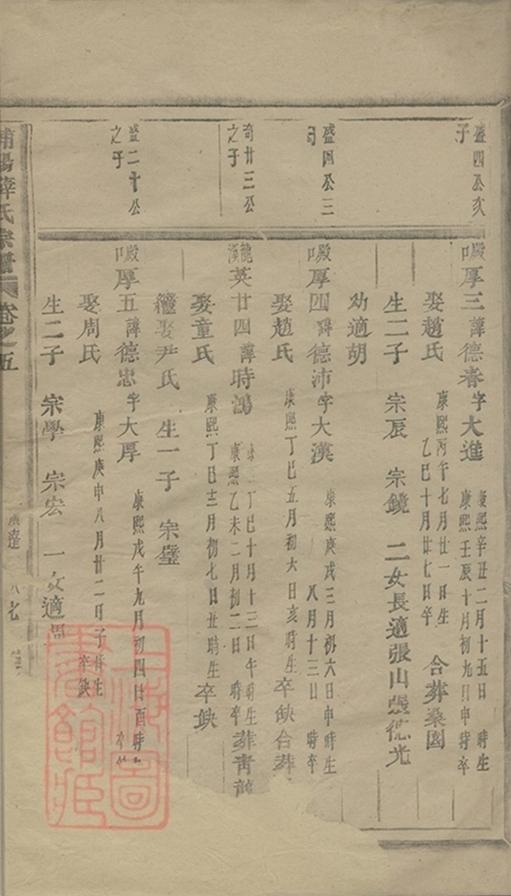 盛四公亥
子
殿口厚三諱德春字大進
康熙辛丑二月十五日 時生
康熙壬辰十月初九日申時卒
娶趙氏
康熙丙午七月廿一日生
乙巳十月廿七日卒
合葬桑園
生二子 宗辰 宗鏡 二女長適張山張德光
幼適胡
盛四公三
殿口厚四諱德沛字大漢
康熙庚戌三月初六日申時生
八月十三日 時卒
娶趙氏
康熙丁巳五月初六日亥時生
卒缺合葬
奇廿三公
之子
龍漢英廿四諱時鴻
丁巳十月十三日午時生
康熙乙未二月初二日 時卒
葬青龍
娶童氏
康熙丁巳十二月初七日丑時生
卒缺
繼娶尹氏 生一子 宗璧
盛二十公
之子
殿口厚五諱德忠字大厚
康熙戊午九月初四日酉時
娶周氏
康熙庚申八月廿二日子時生
卒缺
生二子 宗學 宗宏 一女適周
浦陽薛氏宗譜 卷之五